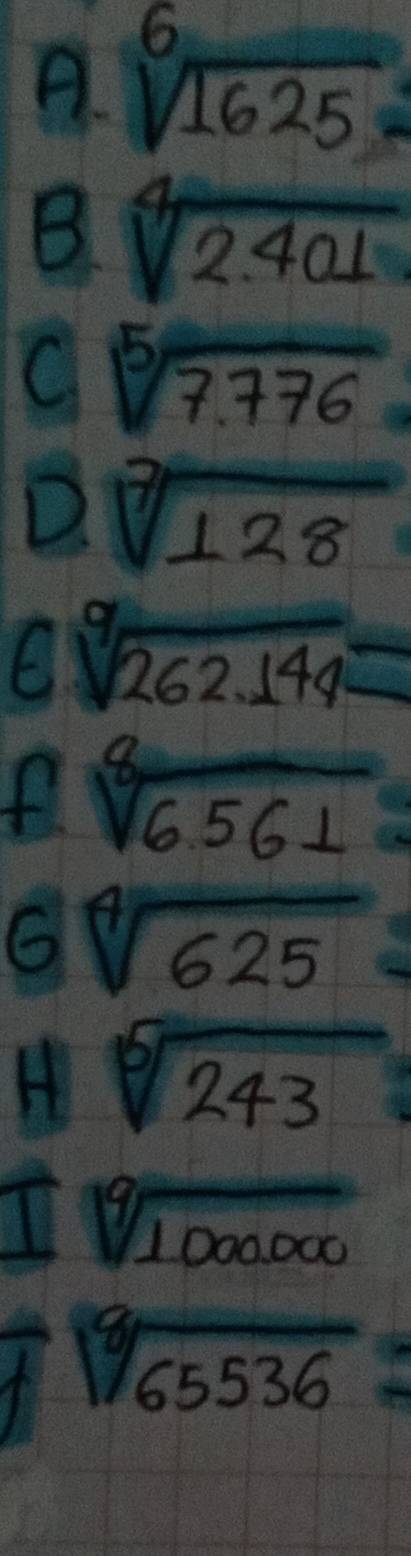 A. ⁶√1625 =
B. ⁴√2.401 =
C. ⁵√7.776 =
D. ⁷√128 =
E. ⁹√262.144 =
f. ⁸√6.561 =
G ⁴√625 =
H ⁵√243 =
I ⁹√1000.000
J ⁸√65536 =